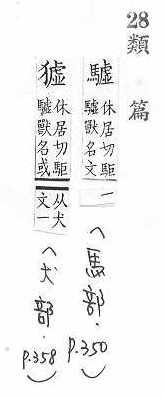 28
類篇
驉 休居切駏
驉獸名文
一
(馬部.p.350)
休居切駏
驉獸名或
从犬
文一
(犬部.p.358)